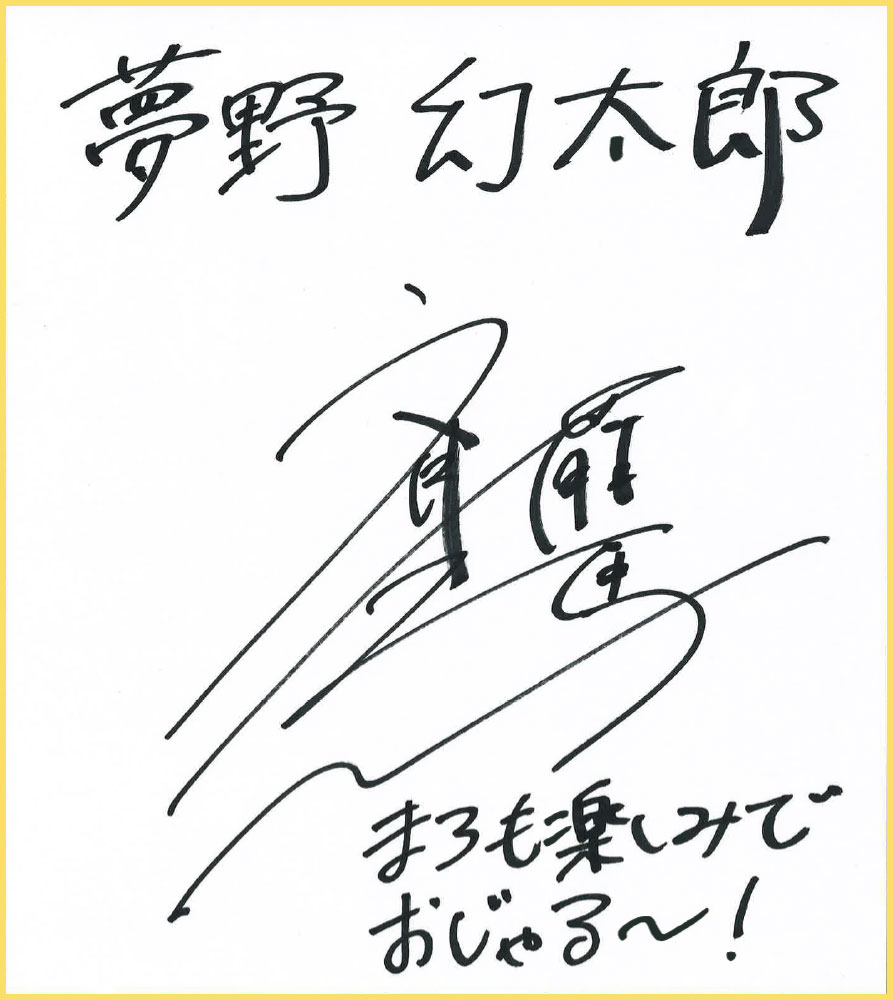 夢野 幻太郎
まろも楽しみで
おじゃる～！